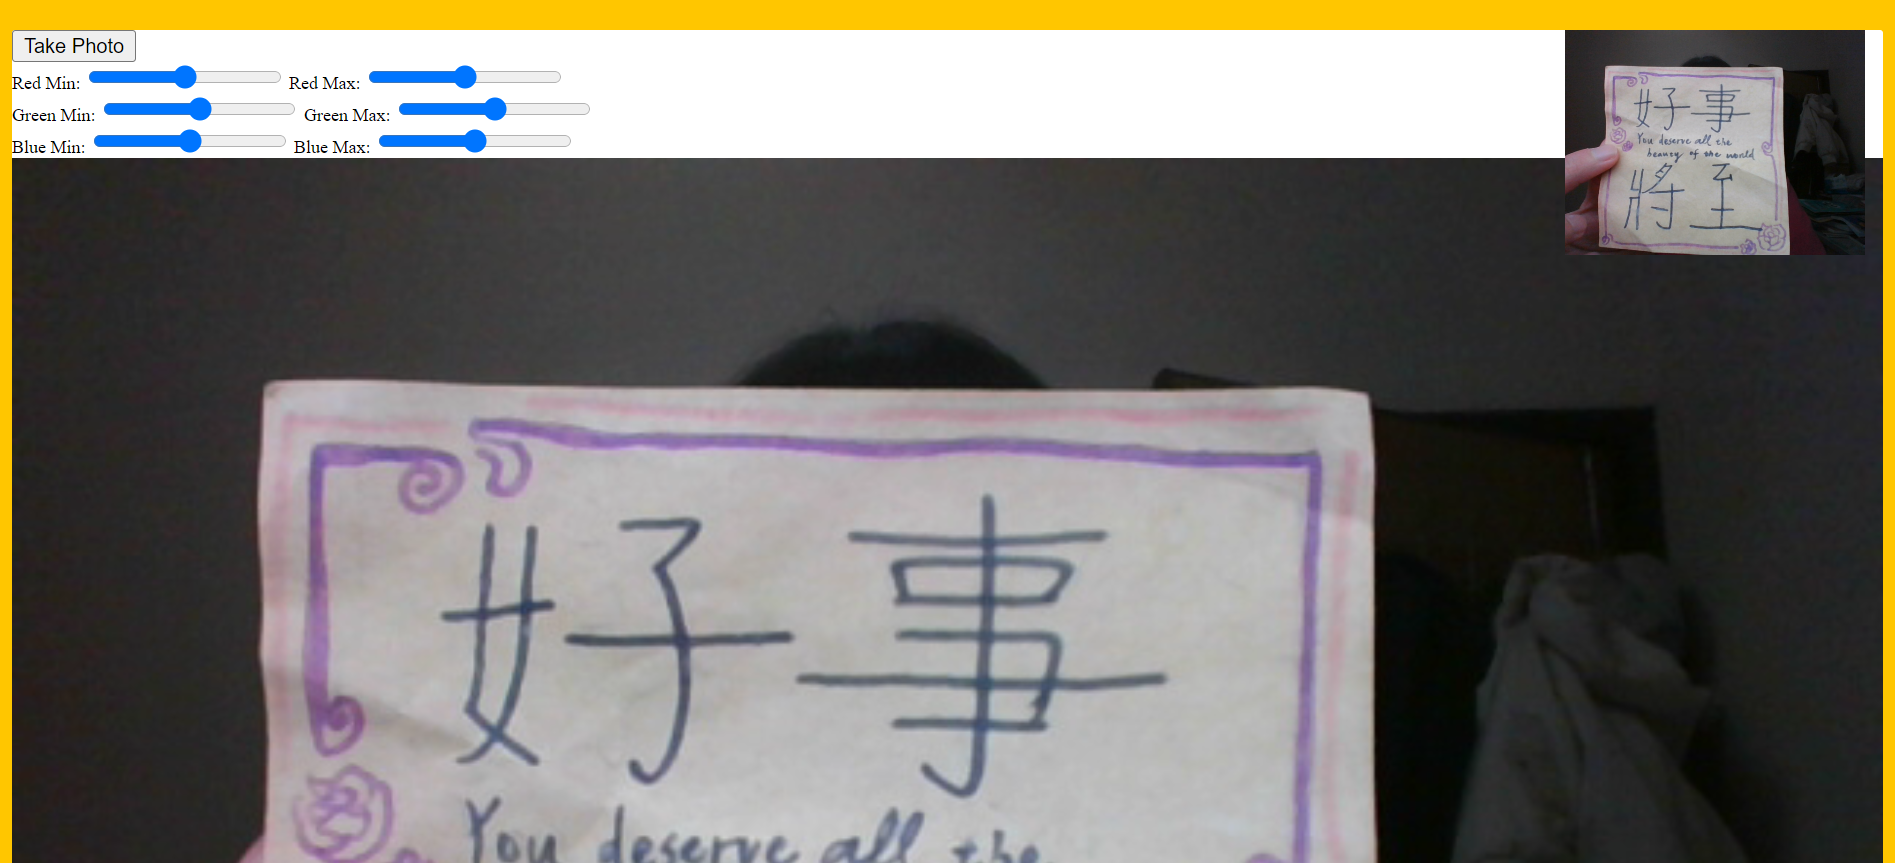 Take Photo
Red Min: Red Max:
Green Min: Green Max:
Blue Min: Blue Max:
好事
You deserve all the
beauty of the world
將至
好事
You deserve all the